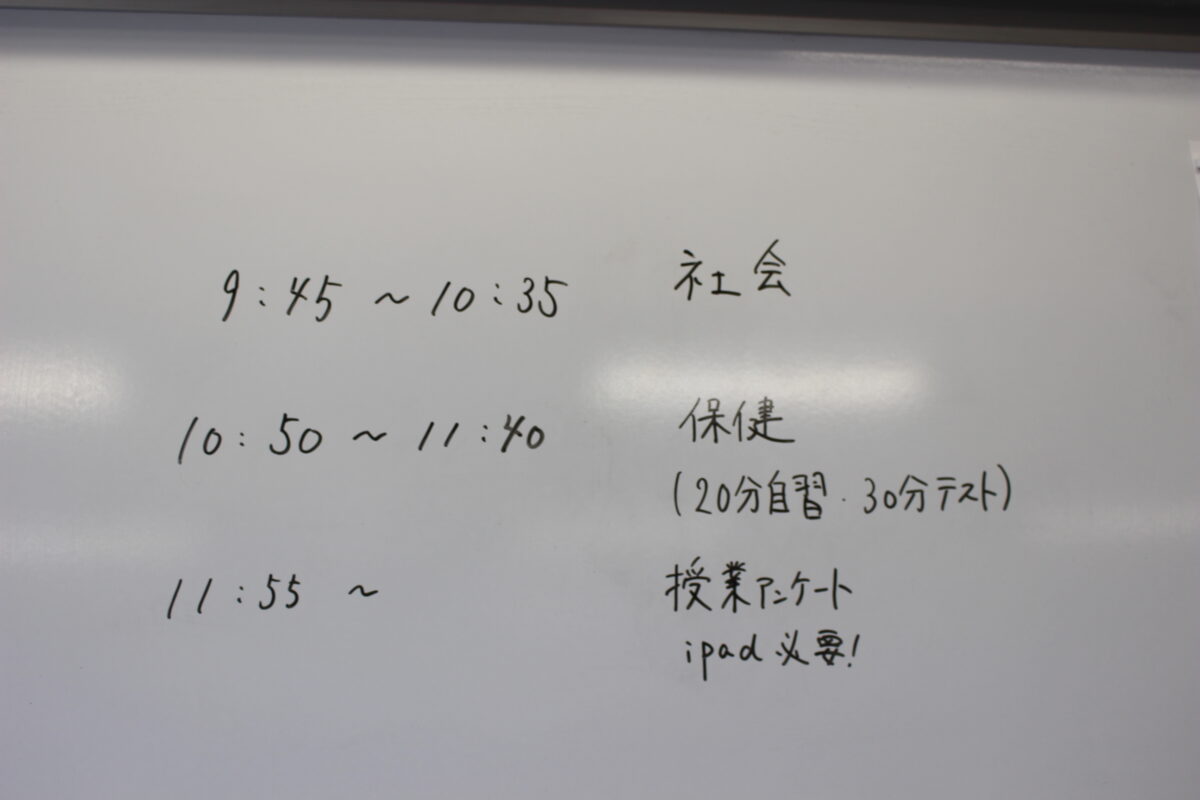 9:45 ~ 10:35 社会
10:50 ~ 11:40 保健
(20分自習・30分テスト)
11:55 ~ 授業アンケート
ipad 必要!